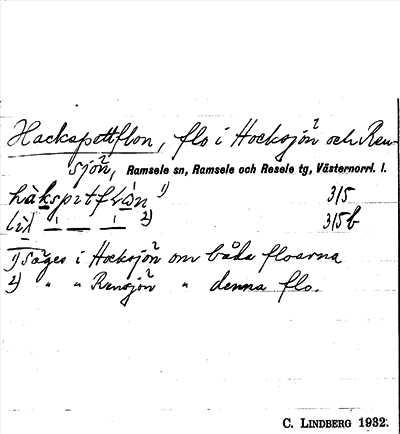 Hackspettflon, flo i Hocksjön och Ren-
sjön, Ramsele sn, Ramsele och Resele tg, Västernorrl. l.
1) 315
lìl — — 2) 315b
1) Säges i Hocksjön om båda floarna
2) " " Rensjön " denna flo.
C. LINDBERG 1932.